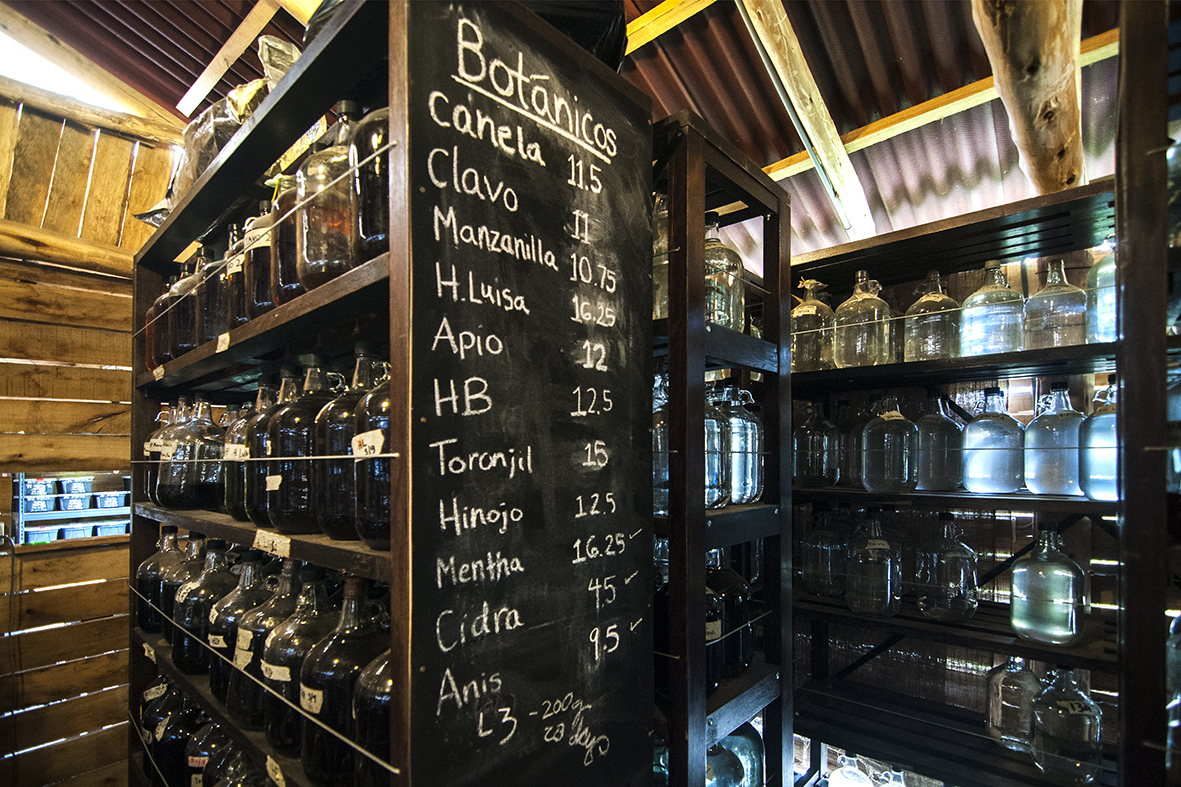 Botánicos
canela 11.5
Clavo 11
Manzanilla 10.75
H.Luisa 16.25
Apio 12
HB 12.5
Toronjil 15
Hinojo 12.5
Mentha 16.25 ✓
Cidra 45 ✓
Anis 9.5 ✓
L3 - 200g
23 days